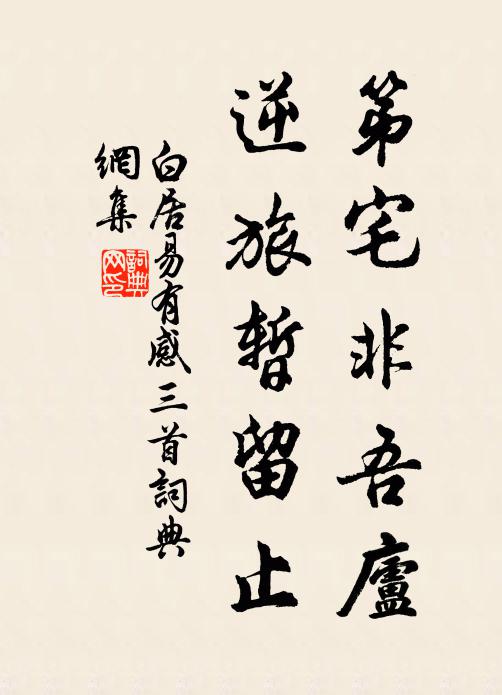 第宅非吾廬
逆旅暫留止
白居易有感三首詞典
網集
詞典
网印